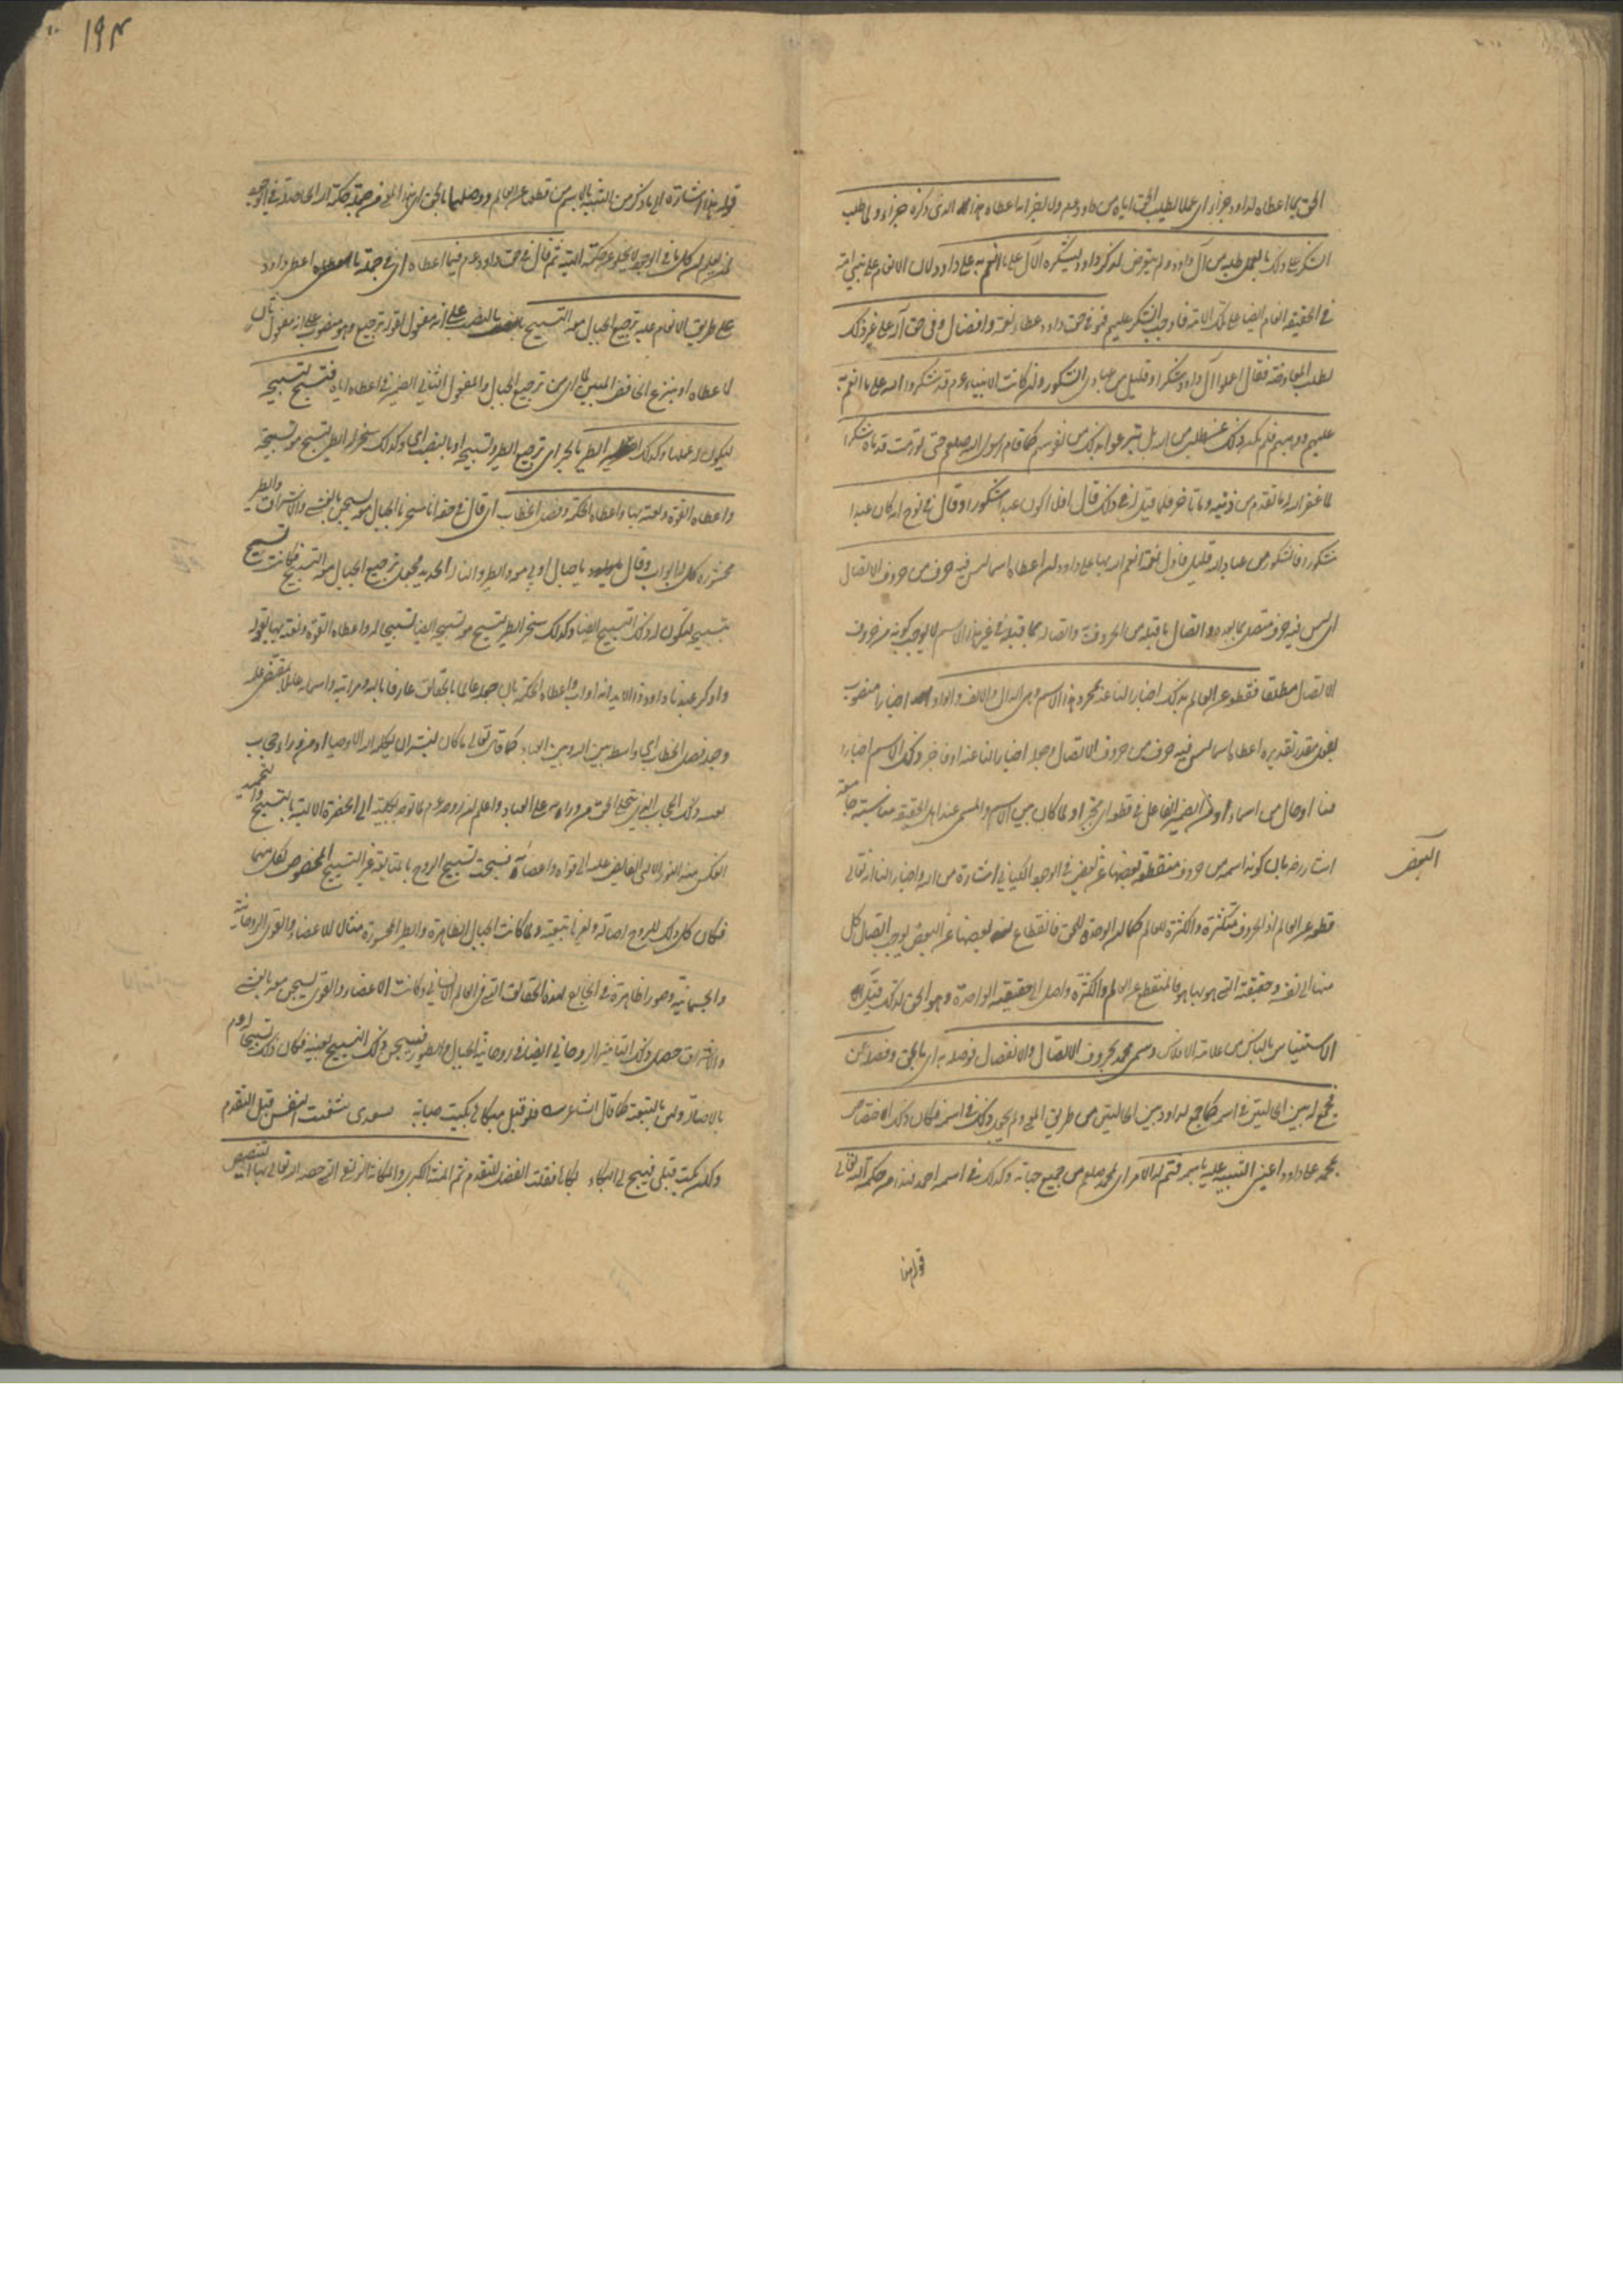 الحق بما اعطاه لداود جزاء اى عملا لطلب الحق اياه من داود عم ولا لخبر انه اعطاه هذا الذى ذكره جزاء ولما طلب
الشكر على ذلك بالعمل طلبه من آل داود ولم يتعرض لذكر داود ليشكره الآل على ما انعم به على داود لان الانعام على نبى امة
فى الحقيقة انعام ايضا على تلك الامة فاوجب الشكر عليهم فهو فى حق داود عطاء نعمة وافضال وفى حق آله على غير ذلك
لطلب المعاوضة فقال اعملوا آل داود شكرا وقليل من عبادى الشكور وان كانت الانبياء عم قد شكروا الله على ما انعم به
عليهم ووهبهم فلم يكن ذلك عن طلب من الله بل تبرعوا بذلك من نفوسهم كما قام رسول الله صلعم حتى تورمت قدماه شكرا
لما غفر الله له ما تقدم من ذنبه وما تاخر فلما قيل له فى ذلك قال افلا اكون عبدا شكورا وقال فى نوح انه كان عبدا
شكورا فالشكور من عباد الله قليل فاول نعمة انعم الله بها على داود ان اعطاه اسما ليس فيه حرف من حروف الاتصال
اى ليس فيه حرف متصل بما بعده واتصال ما قبله من الحروف به واتصاله بما قبله فى غير هذا الاسم لا يوجب كونه من حروف
الاتصال مطلقا فقطعه عن العالم بذلك اخبارا لنا عنه بمجرد هذا الاسم وهى الدال والالف والواو اخبارا منصوب
بفعل مقدر تقديره اعطاه اسما ليس فيه حرف من حروف الاتصال وجعله اخبارا لنا عنه او فاخبر ذلك الاسم اخبارا
منا او حال من اسماء او من الضمير الفاعل فى قطعه اى مخبرا ولما كان بين الاسم والمسمى عند اهل الحقيقة مناسبة جامعة
اشار رضه بان كونه اسمه من حروف منقطعة بعضها عن بعض فى الوجود الكتابى اشارة من الله واخبار لنا انه تعالى
البعض
قطعه عن العالم اذ الحروف متكثرة والكثرة للعالم كما ان الوحدة للحق فانقطاع بعضها عن البعض يوجب اتصال كل
منها الى نفسه وحقيقته التى هو بها هو فالمنقطع عن العالم والكثرة واصل الى حقيقته الواحدة وهو الحق لذلك قيل
الاستئناس بالناس من علامة الافلاس وسمى محمد بحروف الاتصال والانفصال فوصله به اى بالحق وفصله عن
فجمع له بين الحالتين فى اسمه كما جمع لداود بين الحالتين من طريق المعنى ولم يجعل ذلك فى اسمه فكان ذلك اختصاصا
بمحمد على داود اعنى التنبيه عليه باسمه فتم له الامر اى لمحمد صلعم من جميع جهاته وكذلك فى اسمه احمد فهذا من حكمة الله تعالى
قوله هذا
١٩٣
قوله هذا اشارة الى ما ذكر من التنبيه بالاسم من قطعه عن العالم ووصلهما بالحق اى هذا المعنى من جملة حكمة الله الحاصلة فى الوجود
ان كل ما فى الوجود لا يخلو عن حكمة الهية ثم قال فى حق داود عم فيما اعطاه اى فى جملة ما اعطاه اعطى داود
على طريق الانعام عليه ترجيع الجبال معه التسبيح بالنصب على انه مفعول لقوله ترجيع وهو منصوب على انه مفعول ثان
لاعطاه او بنزع الخافض اى من ترجيع الجبال والمفعول الثانى الضمير فى اعطاه اياه فتسبح لتسبيحه
ليكون له عملها وكذلك الطير بالجر اى ترجيع الطير وتسبيحه او بالنصب اى وكذلك سخر له الطير لتسبح معه تسبيحه
واعطاه القوة ونعته بها واعطاه الحكمة وفصل الخطاب اى قال فى حقه انا سخرنا الجبال معه يسبحن بالعشى والاشراق والطير
محشورة كل له اواب وقال يا جبال اوبى معه والطير والنا له الحديد فجعل ترجيع الجبال معه التسبيح فكانت تسبح
بتسبيحه لتكون له ذلك التسبيح ايضا وكذلك سخر الطير لتسبح معه تسبيحه ايضا تسبيحا له واعطاه القوة ونعته بها بقوله
واذكر عبدنا داود ذا الايد انه اواب واعطاه الحكمة بان جعله عالما بالحقائق عارفا بالله ومراتبه واسمائه عاملا بمقتضى علمه
وجعله فصل الخطاب اى واسطة بين الله وبين العباد كما قال تعالى ما كان لبشر ان يكلمه الله الا وحيا او من وراء حجاب
ذلك الحجاب الذى يتجلى الحق من وراءه على العباد واعلم ان روحه عم لما توجه بكليته الى الحضرة الالهية بالتسبيح والتحميد
انعكس منه النور الالهى الفايض عليه الى قواه واعضائه فسبحت تسبيح الروح بالمتابعة غير التسبيح المخصوص لكل منهما
فكان كل ذلك للروح اصالة ولغيرها تبعية ولما كانت الجبال الظاهرة والطير المحشورة مثالا للاعضاء والقوى الروحانية
والجسمانية وصورا ظاهرة فى الخارج لهذه الحقائق التى فى العالم الانسانى وكانت الاعضاء والقوى يسبحن معه بالعشى
والاشراق حصل ذلك التاثير الروحانى ايضا فى روحانية الجبال والطيور فسبحن ذلك التسبيح بعينه فكان ذلك تسبيحا له عم
بالاصالة ولهن بالتبعية كما قال الشاعر فلو قبل مبكاها بكيت صبابة بسعدى شفيت النفس قبل التقدم
ولكن بكت قبلى فهيج لى البكاء بكاها فقلت الفضل للمتقدم ثم المنة الكبرى والمكانة الزلفى التى خصه الله تعالى بها التنصيص